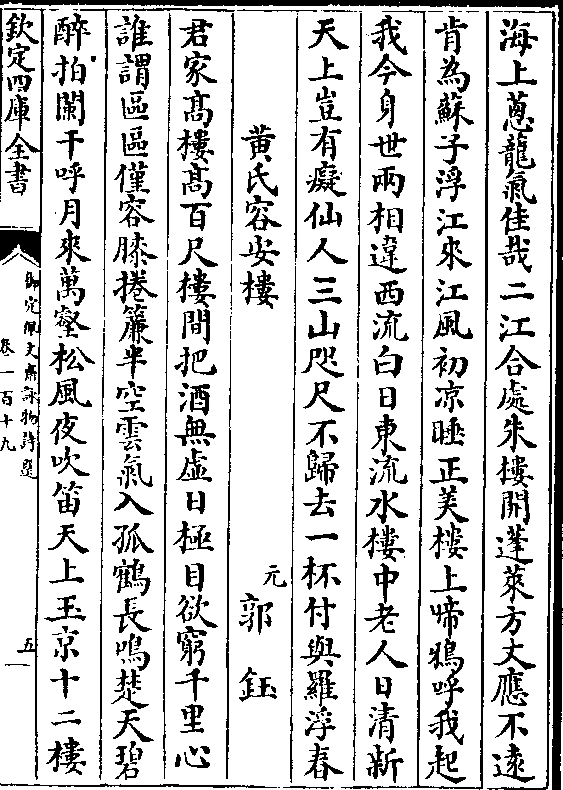 海上蔥蘢氣佳哉二江合處朱樓開蓬萊方丈應不遠
肯為蘇子浮江來江風初凉睡正美樓上啼鴉呼我起
我今身世兩相違西流白日東流水樓中老人日清新
天上豈有癡仙人三山咫尺不歸去一杯付與羅浮春
黄氏容安樓
元郭鈺
君家髙樓髙百尺樓間把酒無虚日極目欲窮千里心
誰謂區區僅容膝捲簾半空雲氣入孤鶴長鳴楚天碧
醉拍闌干呼月來萬壑松風夜吹笛天上玉京十二樓
欽定四庫全書
御定佩文齋詠物詩選
卷一百十九
五